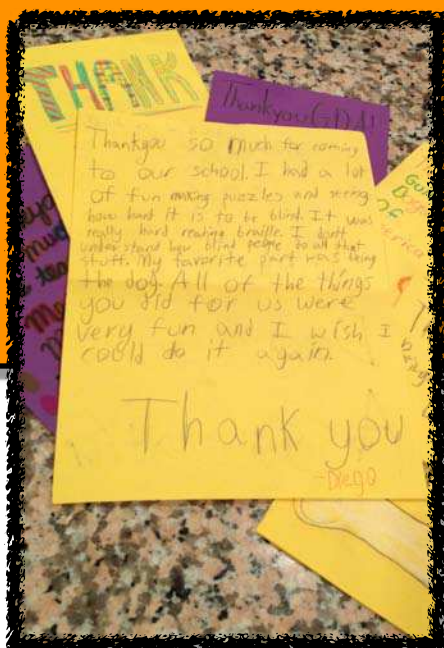 THANK
Thankyou GDA!!
Thankyou so much for coming
to our school. I had a lot
of fun making puzzles and seeing
how hard it is to be blind. It was
really hard reading braille. I don't
understand how blind people do all that
stuff. My favorite part was being
the dog. All of the things
you did for us were
very fun and I wish I
could do it again.
Thank you
-Diego
Dogs
of
America